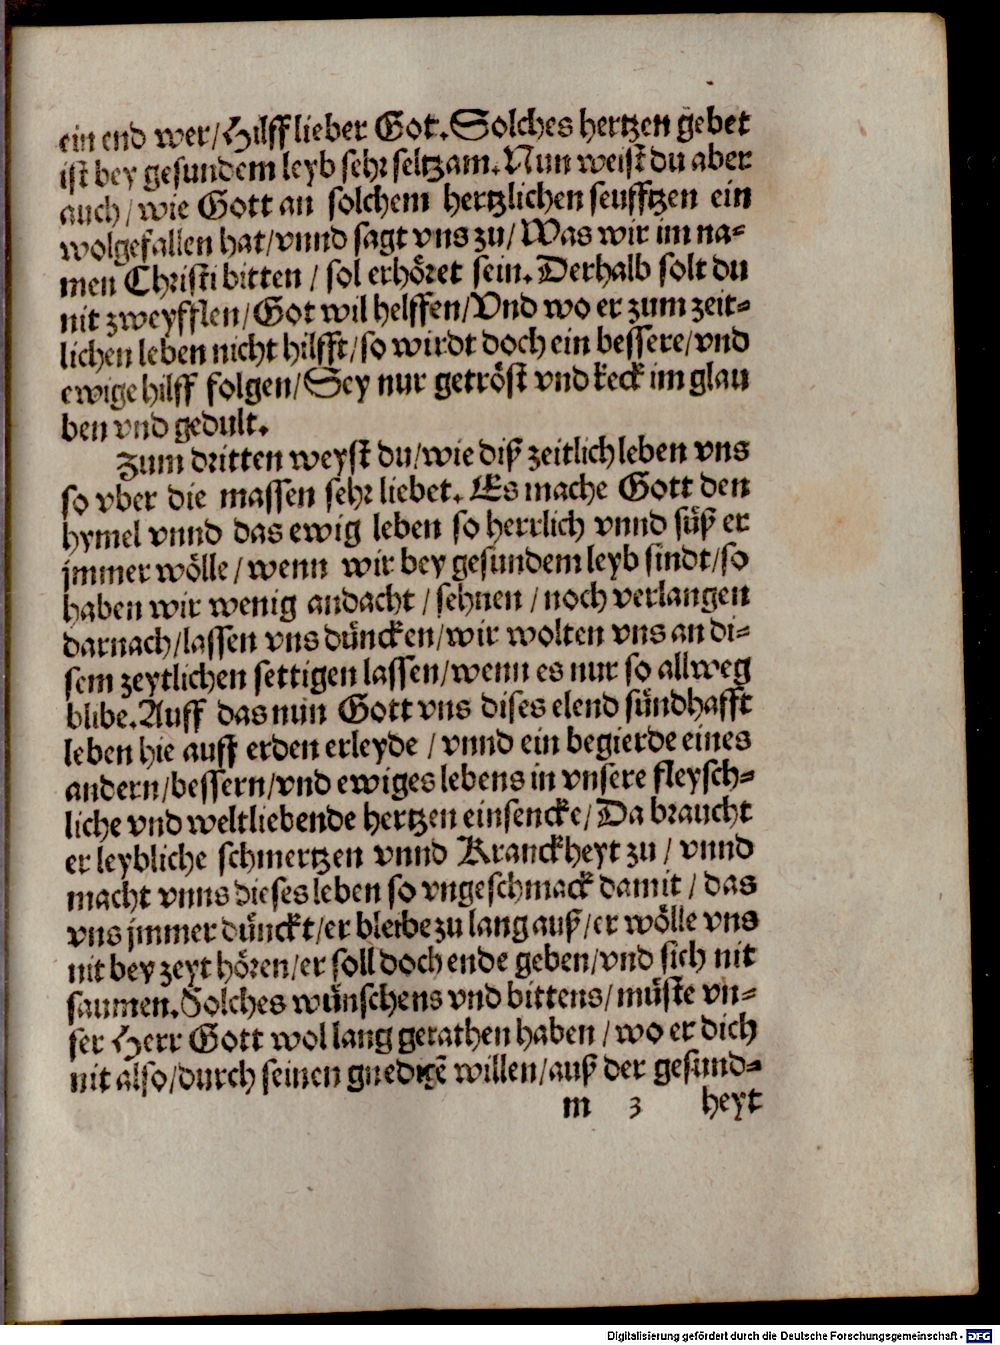 ein end wer/Hilff lieber Got. Solches hertzen gebet
ist bey gesundem leyb sehr seltzam. Nun weist du aber
auch/wie Gott an solchem hertzlichen seufftzen ein
wolgefallen hat/vnnd sagt vns zu/Was wir im na-
men Christi bitten/sol erhöret sein. Derhalb solt du
nit zweyfflen/Got wil helffen/Vnd wo er zum zeit-
lichen leben nicht hilfft/so wirdt doch ein bessere/vnd
ewige hilff folgen/Sey nur getröst vnd keck im glau
ben vnd gedult.
Zum dritten weyst du/wie diß zeitlich leben vns
so vber die massen sehr liebet. Es mache Gott den
hymel vnnd das ewig leben so herrlich vnnd süß er
jmmer wölle/wenn wir bey gesundem leyb sindt/so
haben wir wenig andacht/sehnen/noch verlangen
darnach/lassen vns düncken/wir wolten vns an di-
sem zeytlichen settigen lassen/wenn es nur so allweg
blibe. Auff das nun Gott vns dises elend sündhafft
leben hie auff erden erleyde/vnnd ein begierde eines
andern/bessern/vnd ewiges lebens in vnsere fleysch-
liche vnd weltliebende hertzen einsencke/Da braucht
er leybliche schmertzen vnnd Kranckheyt zu/vnnd
macht vnns dieses leben so vngeschmack damit/das
vns jmmer dünckt/er bleibe zu lang auß/er wölle vns
nit bey zeyt hören/er soll doch ende geben/vnd sich nit
saumen. Solches wünschens vnd bittens/müste vn-
ser Herr Gott wol lang gerathen haben/wo er dich
nit also/durch seinen gnedigē willen/auß der gesund-
m 3 heyt
Digitalisierung gefördert durch die Deutsche Forschungsgemeinschaft - DFG